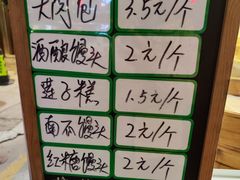 大肉包 3.5元/个
酒酿馒头 2元/个
莲子糕 1.5元/个
南瓜馒头 2元/个
红糖馒头 2元/个